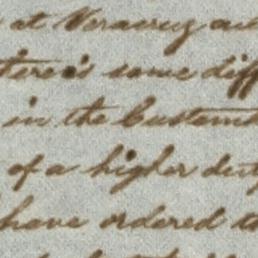 at Veracruz
there's some diff
in the Custom
of a higher duty
have ordered th